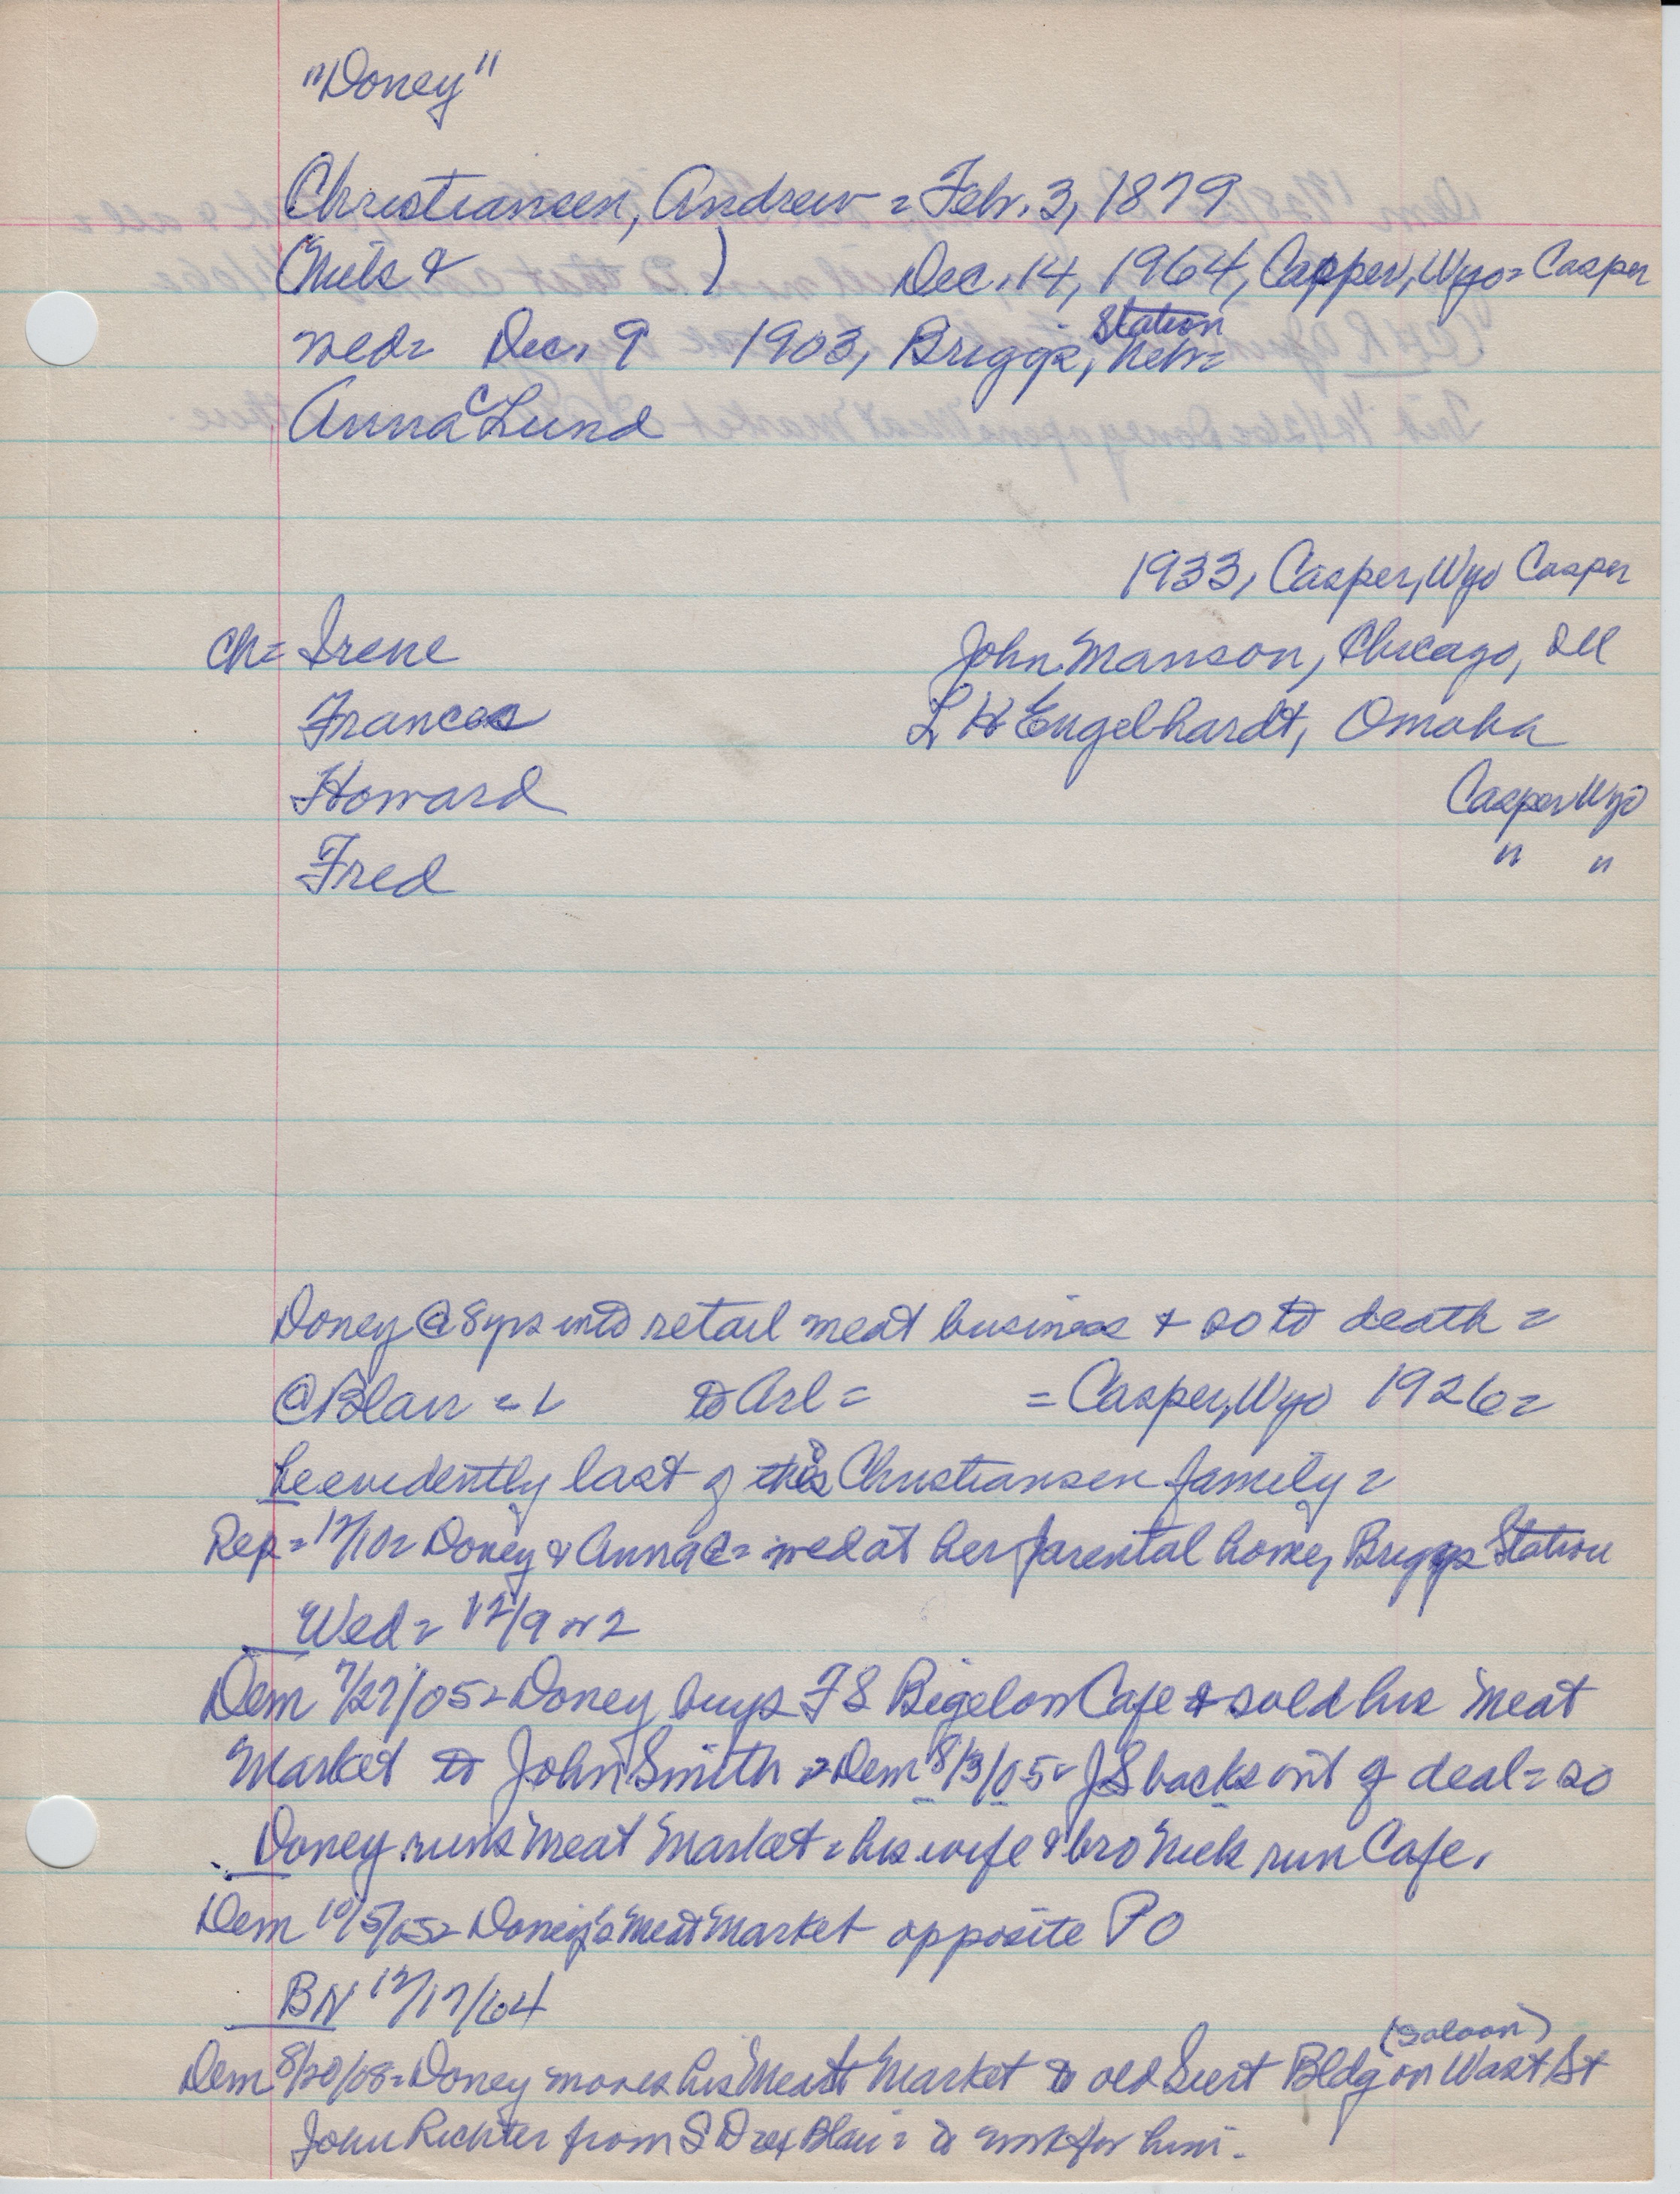 "Doney"
Christiansen, Andrew = Feb. 3, 1879
(Niels & ) Dec. 14, 1964, Casper, Wyo = Casper
wed = Dec. 9 1903, Briggs, Station Nebr =
Anna C Lund
1933, Casper, Wyo Casper
Ch = Irene John Manson, Chicago, Ill
Frances L H Engelhardt, Omaha
Howard Casper Wyo
Fred " "
Doney @ 8 yrs into retail meat business & so to death =
@ Blair = to Arl = = Casper, Wyo 1926 =
he evidently last of this Christiansen family =
Rep = 12/10 = Doney & Anna C = wed at her parental home, Briggs Station
Wed = 12/9 or 2
Dem 7/27/05 = Doney buys F S Bigelow Cafe & sold his Meat
Market to John Smith = Dem 8/3/05 = JS backs out of deal = so
Doney runs Meat Market = his wife & bro Nick run Cafe.
Dem 10/5/05 = Doney's Meat Market opposite P O
BN 12/17/04
(Saloon)
Dem 8/20/08 = Doney moves his Meat Market to old Bldg on Wast St
John Richter from S D Blair = to work for him.